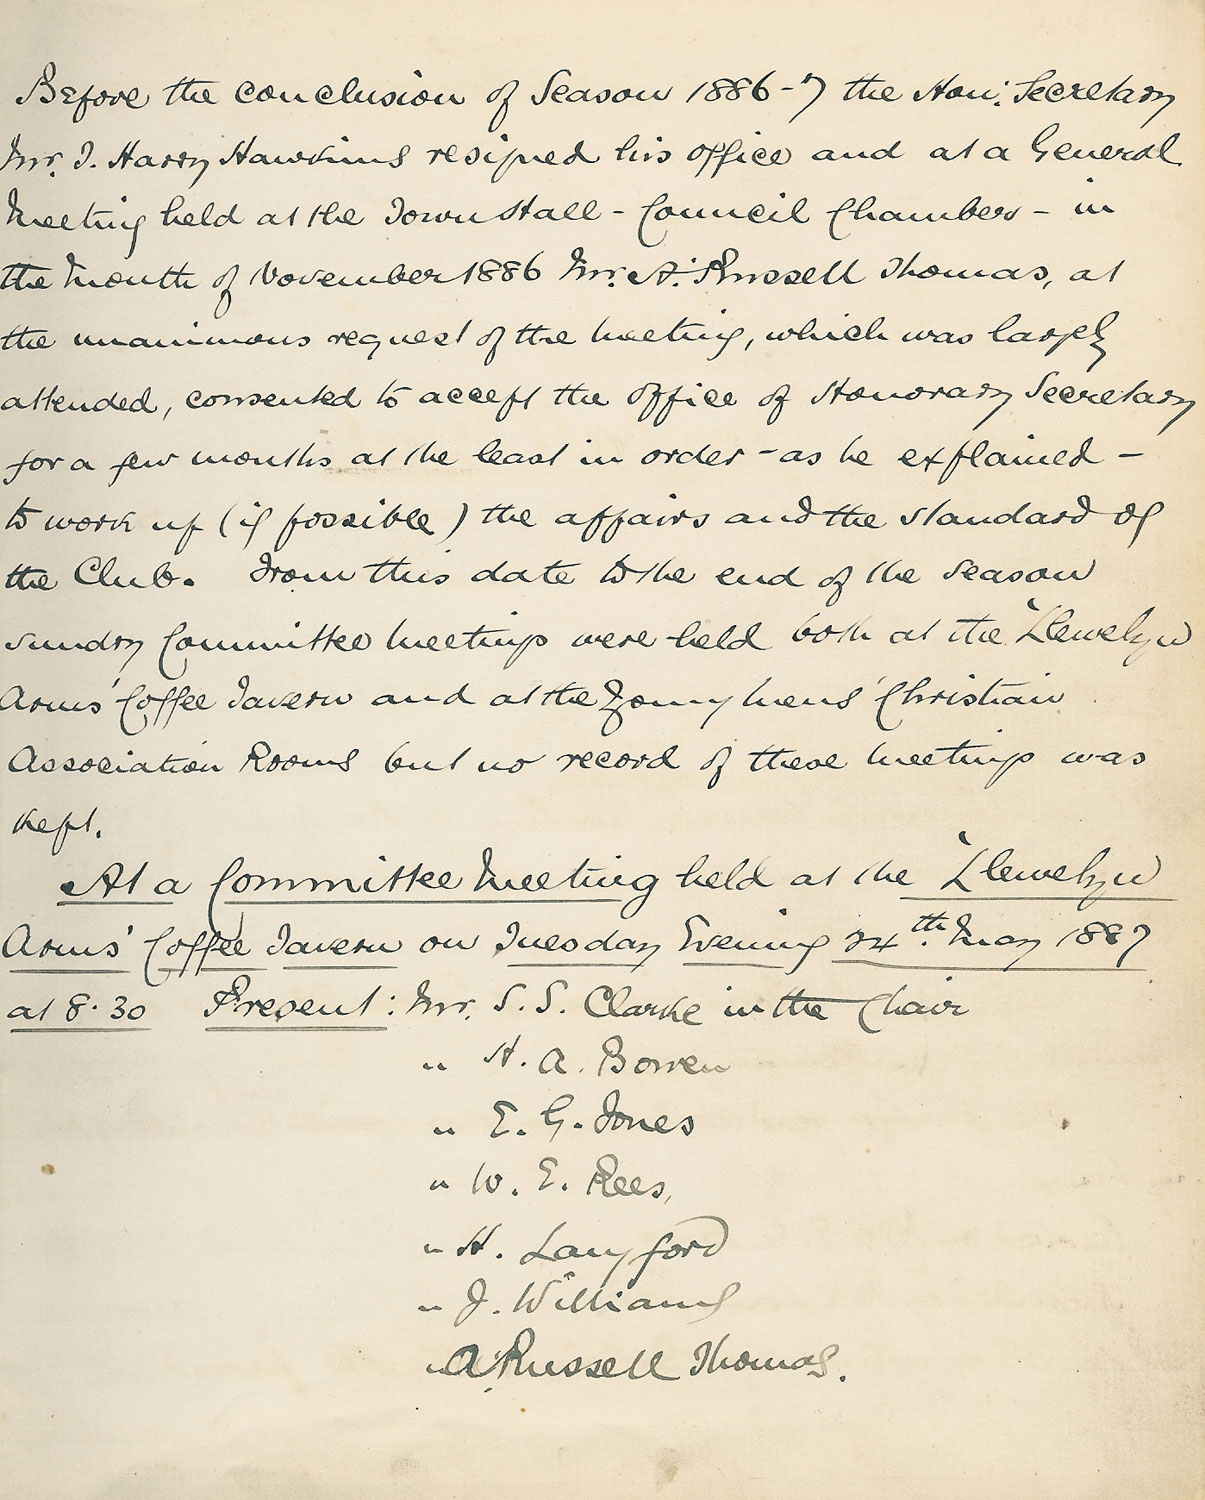 Before the conclusion of Season 1886-7 the Hon: Secretary
Mr. J. Harry Hawkins resigned his office and at a General
Meeting held at the Town Hall - Council Chambers - in
the month of November 1886 Mr. A. Russell Thomas, at
the unanimous request of the meeting, which was largely
attended, consented to accept the office of Honorary Secretary
for a few months at the least in order - as he explained -
to work up (if possible) the affairs and the standard of
the Club. From this date to the end of the season
sundry Committee meetings were held both at the 'Llewelyn
Arms' Coffee Tavern and at the Young Mens' Christian
Association Rooms but no record of these meetings was
kept.
At a Committee Meeting held at the 'Llewelyn
Arms' Coffee Tavern on Tuesday Evening 24th. May 1887
at 8.30 Present: Mr. S. S. Clarke in the Chair
" H. A. Bowen
" E. G. Jones
" W. E. Rees,
" H. Langford
" J. Williams
" A. Russell Thomas.